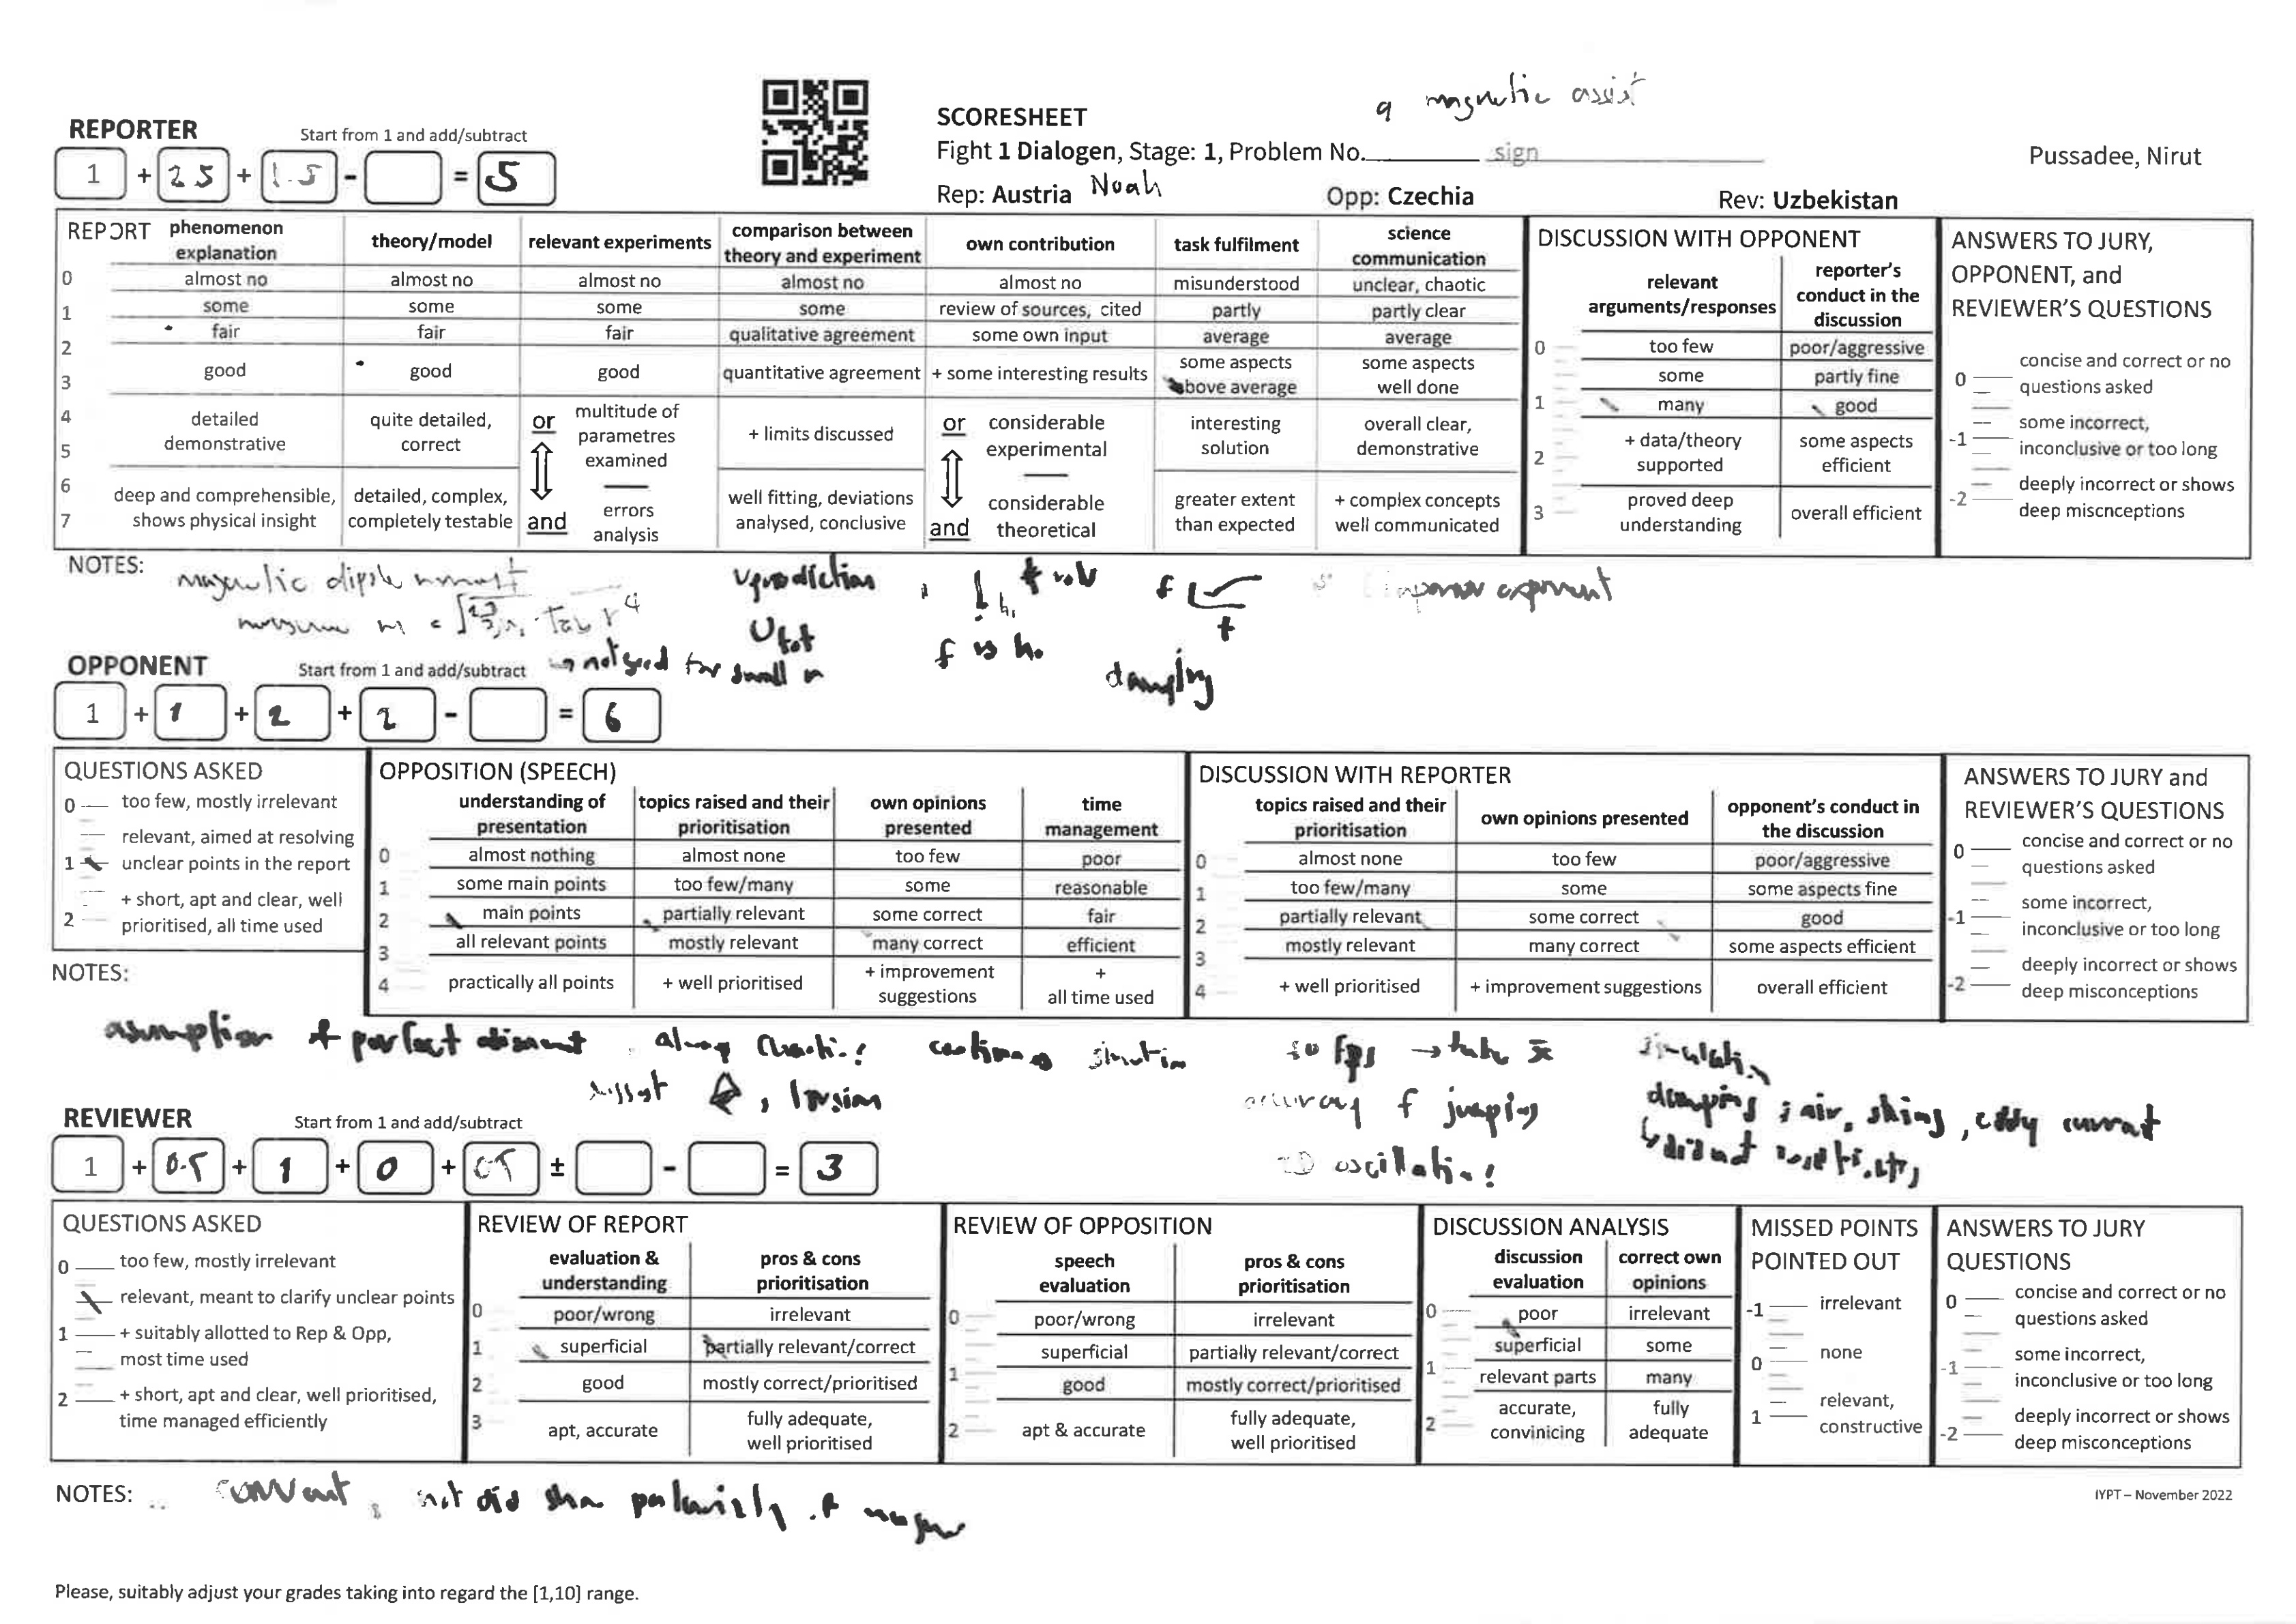 9 magnetic assist
SCORESHEET
REPORTER Start from 1 and add/subtract
Fight 1 Dialogen, Stage: 1, Problem No. sign
Pussadee, Nirut
1 + 2.5 + 1.5 - = 5
Rep: Austria Noah Opp: Czechia Rev: Uzbekistan
REPORT
phenomenon explanation | theory/model | relevant experiments | comparison between theory and experiment | own contribution | task fulfilment | science communication
0 almost no | almost no | almost no | almost no | almost no | misunderstood | unclear, chaotic
1 some | some | some | some | review of sources, cited | partly | partly clear
fair | fair | fair | qualitative agreement | some own input | average | average
2
3 good | good | good | quantitative agreement | + some interesting results | some aspects above average | some aspects well done
4
5 detailed demonstrative | quite detailed, correct | or multitude of parametres examined | + limits discussed | or considerable experimental | interesting solution | overall clear, demonstrative
6
7 deep and comprehensible, shows physical insight | detailed, complex, completely testable | and errors analysis | well fitting, deviations analysed, conclusive | and considerable theoretical | greater extent than expected | + complex concepts well communicated
DISCUSSION WITH OPPONENT
relevant arguments/responses | reporter's conduct in the discussion
0 too few | poor/aggressive
some | partly fine
1 many | good
2 + data/theory supported | some aspects efficient
3 proved deep understanding | overall efficient
ANSWERS TO JURY, OPPONENT, and REVIEWER'S QUESTIONS
0 concise and correct or no questions asked
-1 some incorrect, inconclusive or too long
-2 deeply incorrect or shows deep miscnceptions
NOTES:
magnetic dipole
damping
OPPONENT Start from 1 and add/subtract
not good for small m
1 + 1 + 2 + 2 - = 6
QUESTIONS ASKED
0 too few, mostly irrelevant
relevant, aimed at resolving
1 unclear points in the report
+ short, apt and clear, well
2 prioritised, all time used
OPPOSITION (SPEECH)
understanding of presentation | topics raised and their prioritisation | own opinions presented | time management
0 almost nothing | almost none | too few | poor
1 some main points | too few/many | some | reasonable
2 main points | partially relevant | some correct | fair
3 all relevant points | mostly relevant | many correct | efficient
4 practically all points | + well prioritised | + improvement suggestions | + all time used
DISCUSSION WITH REPORTER
topics raised and their prioritisation | own opinions presented | opponent's conduct in the discussion
0 almost none | too few | poor/aggressive
1 too few/many | some | some aspects fine
2 partially relevant | some correct | good
3 mostly relevant | many correct | some aspects efficient
4 + well prioritised | + improvement suggestions | overall efficient
ANSWERS TO JURY and REVIEWER'S QUESTIONS
0 concise and correct or no questions asked
-1 some incorrect, inconclusive or too long
-2 deeply incorrect or shows deep misconceptions
NOTES:
assumption of perfect
accuracy of jumping
damping ; air, eddy current
REVIEWER Start from 1 and add/subtract
1 + 0.5 + 1 + 0 + 0.5 ± - = 3
QUESTIONS ASKED
0 too few, mostly irrelevant
relevant, meant to clarify unclear points
1 + suitably allotted to Rep & Opp, most time used
2 + short, apt and clear, well prioritised, time managed efficiently
REVIEW OF REPORT
evaluation & understanding | pros & cons prioritisation
0 poor/wrong | irrelevant
1 superficial | partially relevant/correct
2 good | mostly correct/prioritised
3 apt, accurate | fully adequate, well prioritised
REVIEW OF OPPOSITION
speech evaluation | pros & cons prioritisation
0 poor/wrong | irrelevant
superficial | partially relevant/correct
1 good | mostly correct/prioritised
2 apt & accurate | fully adequate, well prioritised
DISCUSSION ANALYSIS
discussion evaluation | correct own opinions
0 poor | irrelevant
superficial | some
1 relevant parts | many
2 accurate, convinicing | fully adequate
MISSED POINTS POINTED OUT
-1 irrelevant
0 none
1 relevant, constructive
ANSWERS TO JURY QUESTIONS
0 concise and correct or no questions asked
-1 some incorrect, inconclusive or too long
-2 deeply incorrect or shows deep misconceptions
NOTES:
IYPT – November 2022
Please, suitably adjust your grades taking into regard the [1,10] range.